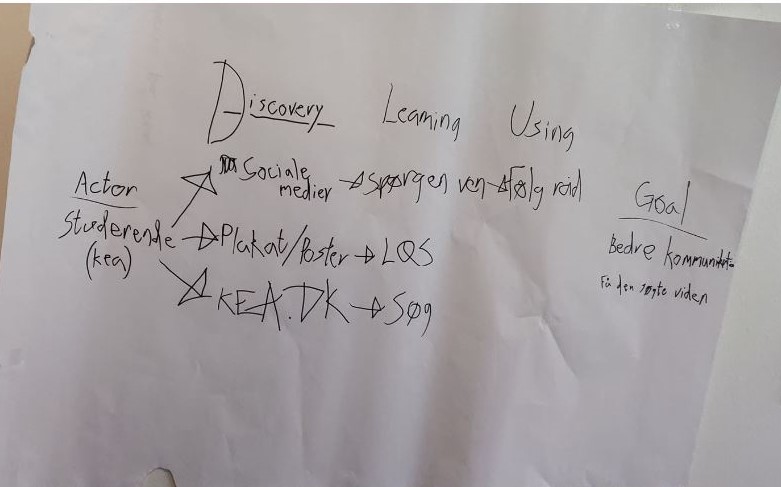 Discovery Learning Using
Actor
Studerende
(kea)
Sociale
medier → spørgen ven → Følg
→ Plakat/Poster → LQS
KEA.DK → Søg
Goal
Bedre
Få den søgte viden